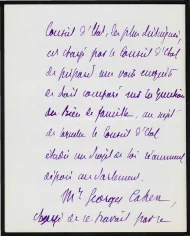 Conseil d'Etat, les plus distingués
est chargé par le Conseil d'Etat
de préparer une vaste enquête
de droit comparé sur les questions
des Biens de famille, au sujet
de
le Conseil d'Etat
étudie un projet de loi
déposé au Parlement.
Mr Georges Cahen,
chargé de ce travail par le